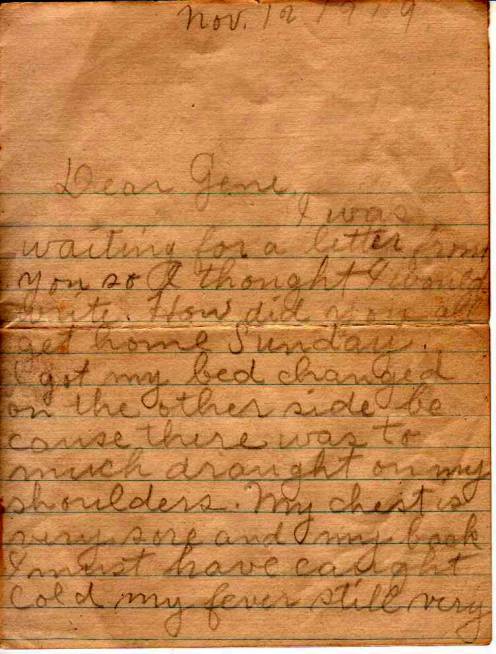 Nov. 12 1919
Dear Gene,
I was
waiting for a letter from
you so I thought I would
write. How did you all
get home Sunday.
I got my bed changed
on the other side be
cause there was to
much draught on my
shoulders. My chest is
very sore and my back
I must have caught
Cold my fever still very